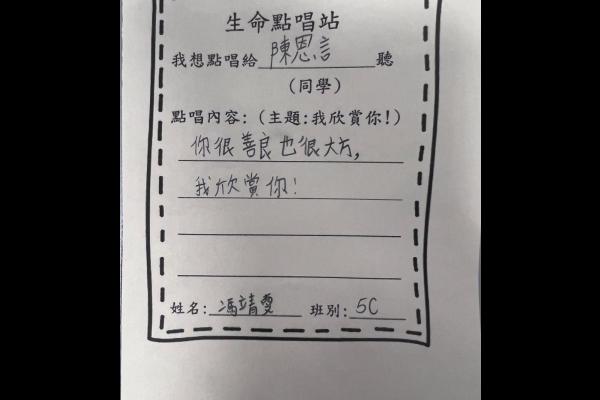 生命點唱站
我想點唱給 陳恩言 聽
(同學)
點唱內容:(主題:我欣賞你!)
你很善良也很大方,
我欣賞你!
姓名: 馮靖雯 班別: 5C